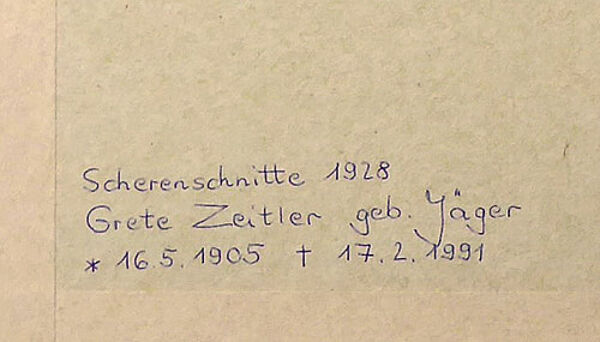 Scherenschnitte 1928
Grete Zeitler geb. Jäger
* 16.5.1905 † 17.2.1991